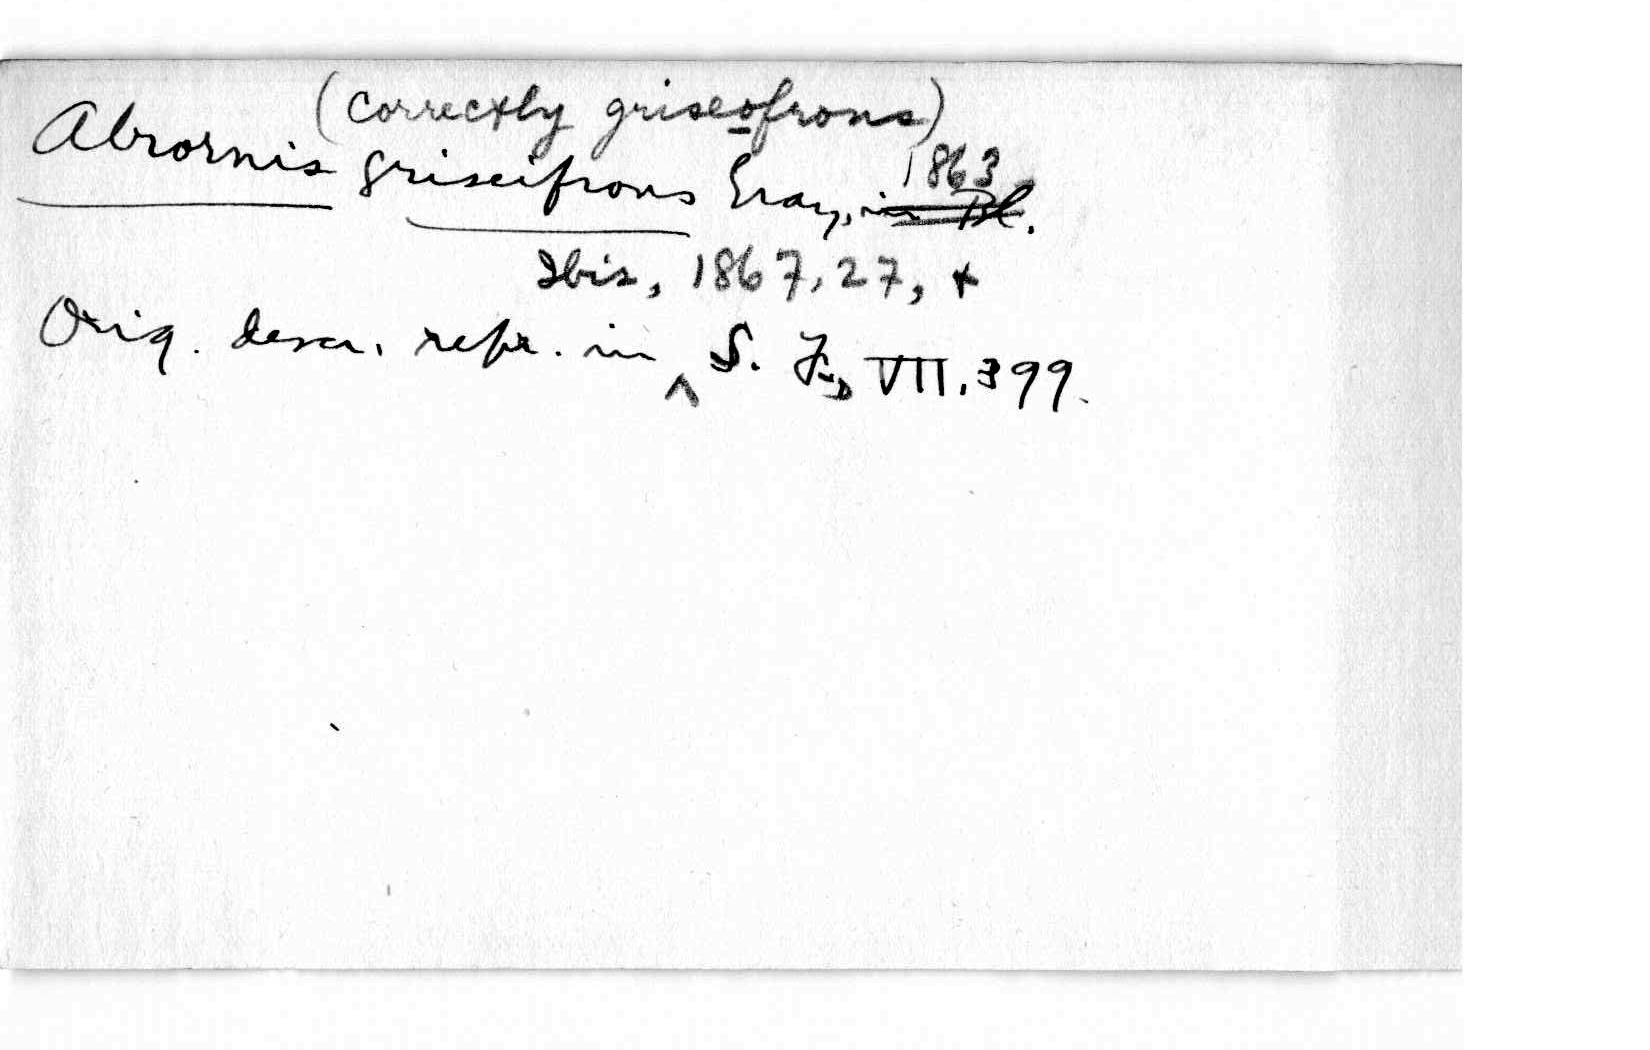 (correctly griseofrons)
Abrornis griseifrons Gray, in Bl. 1863
Ibis, 1867, 27, +
Orig. descr. repr. in ^ S. F., VII. 399.